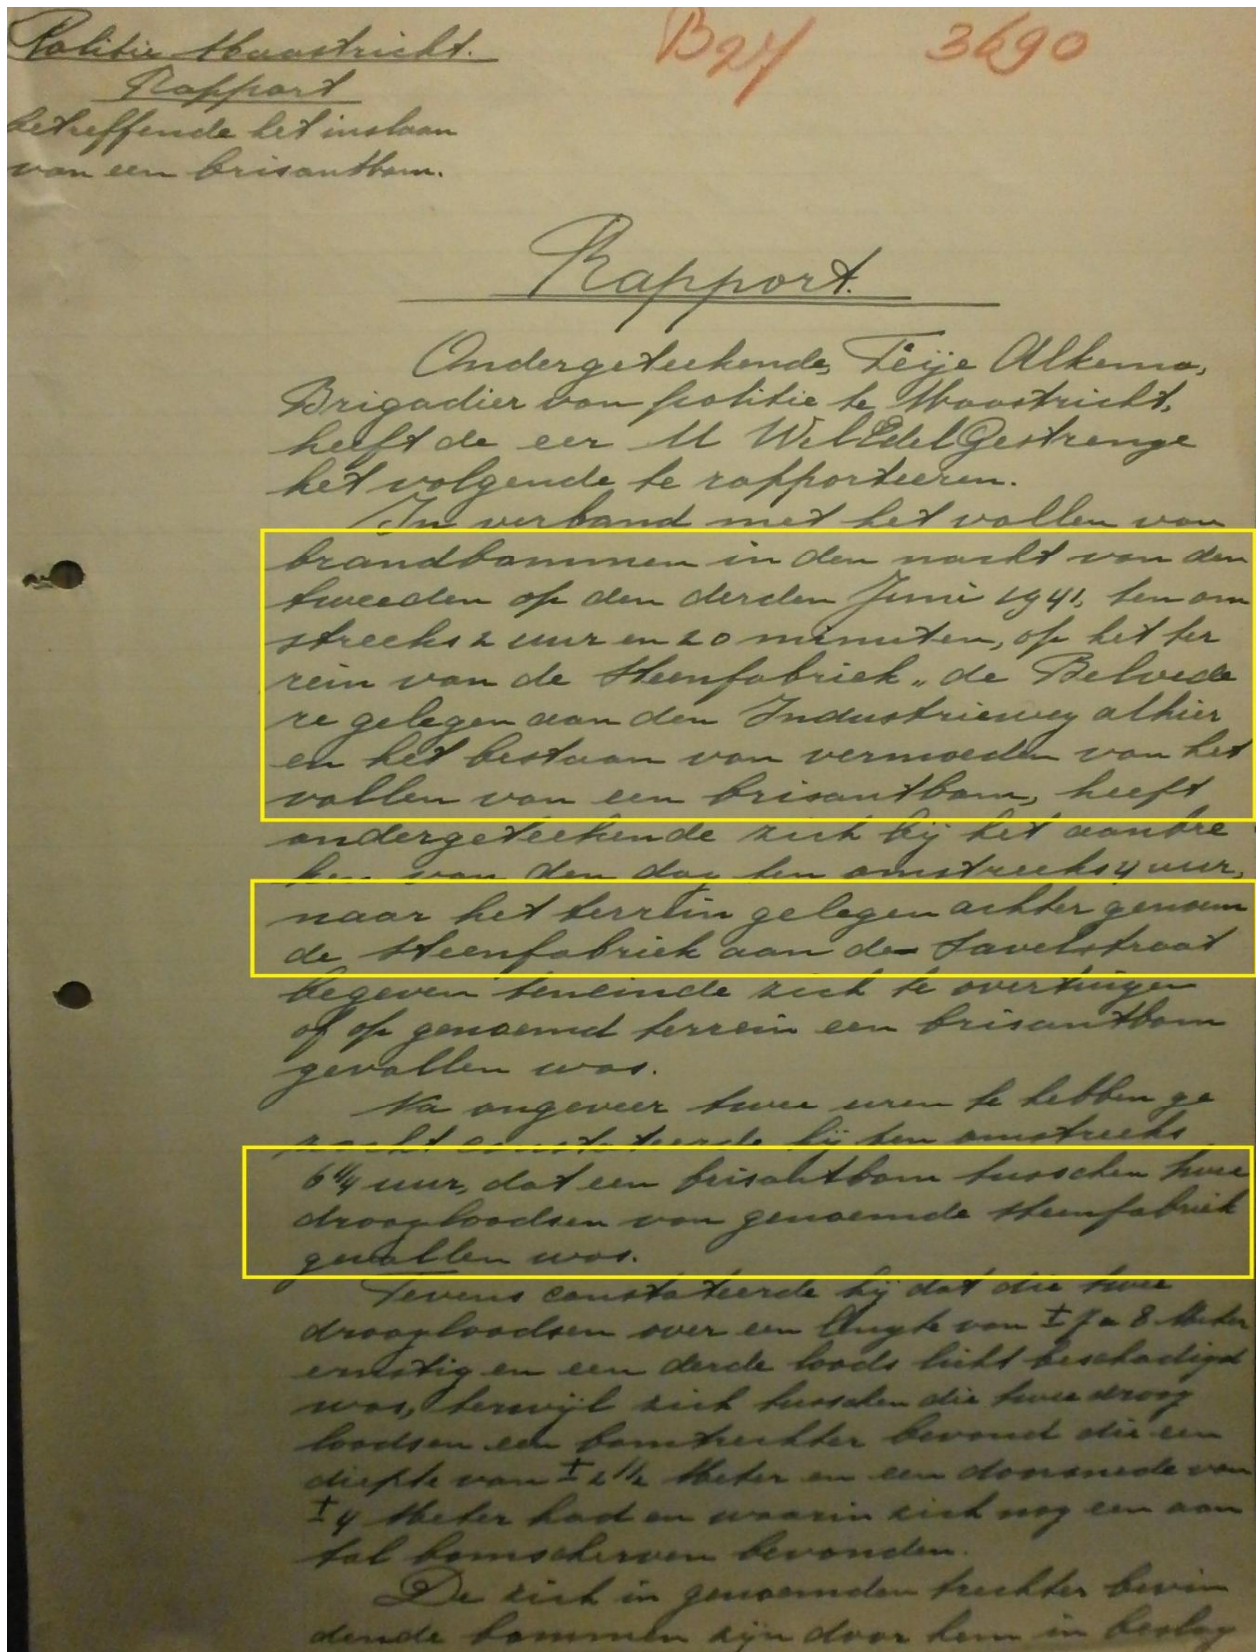 Politie Maastricht.
B27 3690
Rapport
betreffende het inslaan
van een brisantbom.
Rapport.
Ondergeteekende, Feije Alkema,
Brigadier van politie te Maastricht,
heeft de eer U WelEdelGestrenge
het volgende te rapporteeren.
In verband met het vallen van
brandbommen in den nacht van den
tweeden op den derden Juni 1941, ten om
streeks 2 uur en 20 minuten, op het ter
rein van de steenfabriek „de Belvede
re gelegen aan den Industrieweg alhier
en het bestaan van vermoeden van het
vallen van een brisantbom, heeft
ondergeteekende zich bij het aanbre
ken van den dag ten omstreeks 4 uur,
naar het terrein gelegen achter genoem
de steenfabriek aan de Lavelstraat
begeven teneinde zich te overtuigen
of op genoemd terrein een brisantbom
gevallen was.
Na ongeveer twee uren te hebben ge
zocht constateerde hij ten omstreeks
6 1/4 uur, dat een brisantbom tusschen twee
droogloodsen van genoemde steenfabriek
gevallen was.
Tevens constateerde hij dat die twee
droogloodsen over een lengte van ± 7 a 8 Meter
ernstig en een derde loods licht beschadigd
was, terwijl zich tusschen die twee droog
loodsen een bomtrechter bevond die een
diepte van ± 2 1/2 Meter en een doorsnede van
± 4 Meter had en waarin zich nog een aan
tal bomscherven bevonden.
De zich in genoemden trechter bevin
dende bommen zijn door hem in beslag